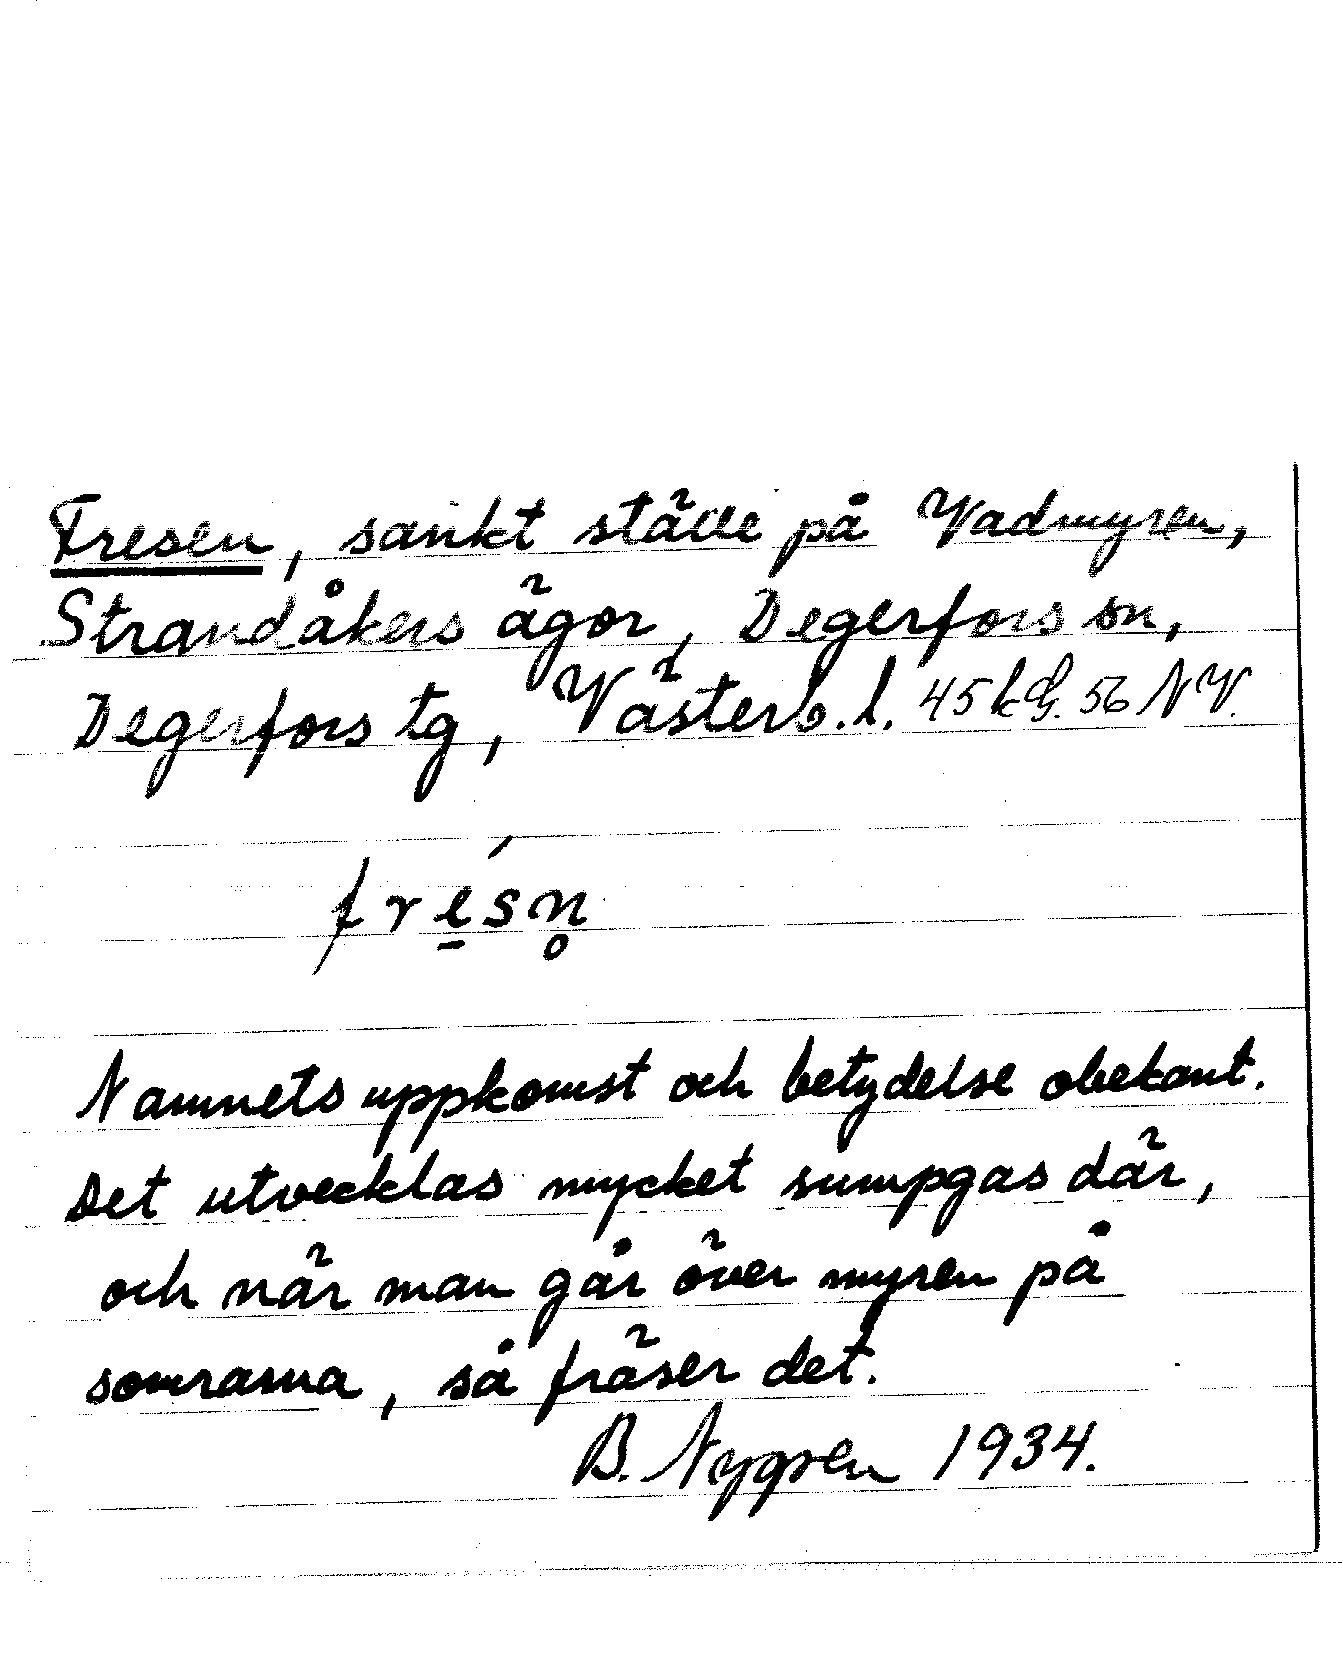 Fresen, sankt ställe på Vadmyren,
Strandåkers ägor, Degerfors sn,
Degerfors tg, Västerb. l. 45 kbl. 56 NV.
frésn̥
Namnets uppkomst och betydelse obekant.
Det utvecklas mycket sumpgas där,
och när man går över myren på
somrarna, så fräser det.
B. Nygren 1934.